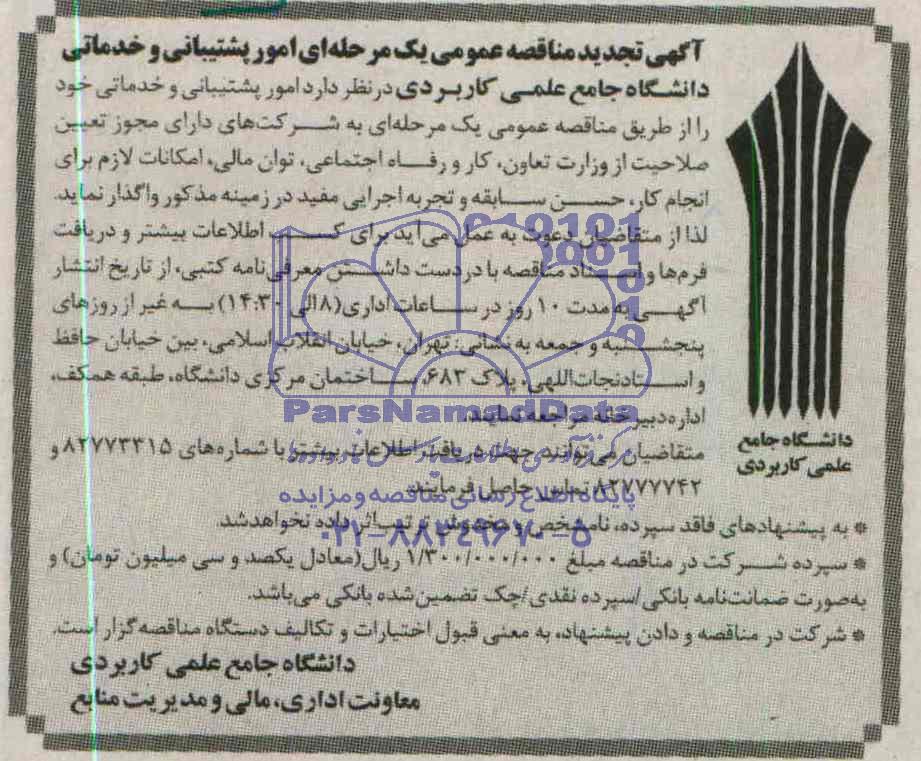 آگهی تجدید مناقصه عمومی یک مرحله‌ای امور پشتیبانی و خدماتی
دانشگاه جامع علمی کاربردی در نظر دارد امور پشتیبانی و خدماتی خود
را از طریق مناقصه عمومی یک مرحله‌ای به شرکت‌های دارای مجوز تعیین
صلاحیت از وزارت تعاون، کار و رفاه اجتماعی، توان مالی، امکانات لازم برای
انجام کار، حسن سابقه و تجربه اجرایی مفید در زمینه مذکور واگذار نماید.
لذا از متقاضیان دعوت به عمل می‌آید برای اطلاعات بیشتر و دریافت
فرم‌ها و اسناد مناقصه با در دست داشتن معرفی‌نامه کتبی، از تاریخ انتشار
آگهی به مدت ۱۰ روز در ساعات اداری (۸ الی ۱۴:۳۰) به غیر از روزهای
پنجشنبه و جمعه به نشانی: تهران، خیابان انقلاب اسلامی، بین خیابان حافظ
و استاد نجات‌اللهی، پلاک ۶۸۳، ساختمان مرکزی دانشگاه، طبقه همکف،
اداره دبیرخانه مراجعه نمایند.
متقاضیان می‌توانند جهت دریافت اطلاعات بیشتر با شماره‌های ۸۲۷۷۳۳۱۵ و
۸۲۷۷۷۷۴۲ تماس حاصل فرمایند.
* به پیشنهادهای فاقد سپرده، نامشخص و مخدوش ترتیب اثر داده نخواهد شد.
* سپرده شرکت در مناقصه مبلغ ۱/۳۰۰/۰۰۰/۰۰۰ ریال (معادل یکصد و سی میلیون تومان) و
به‌صورت ضمانت‌نامه بانکی/سپرده نقدی/چک تضمین شده بانکی می‌باشد.
* شرکت در مناقصه و دادن پیشنهاد، به معنی قبول اختیارات و تکالیف دستگاه مناقصه‌گزار است.
دانشگاه جامع علمی کاربردی
معاونت اداری، مالی و مدیریت منابع
دانشگاه جامع
علمی کاربردی
ParsNamadData
پایگاه اطلاع رسانی مناقصه و مزایده
۰۲۱-۸۸۳۴۹۶۷۰-۵